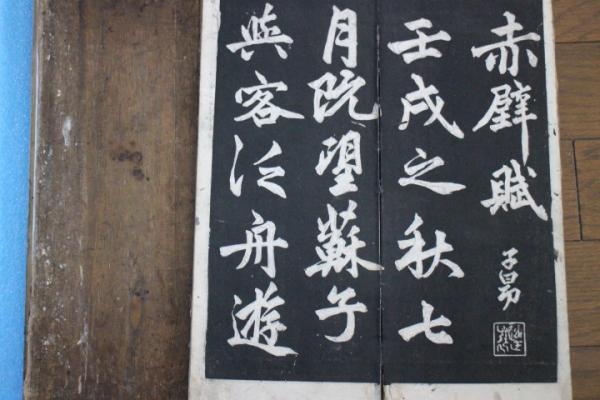 赤壁賦
子昂
壬戌之秋七
月既望蘇子
與客泛舟遊